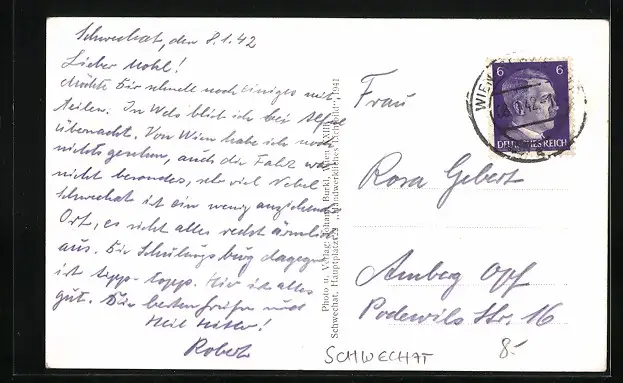 Schwechat, den 8.1.42
Lieber Mohl!
Möchte Dir schnell noch einiges mit-
teilen. In Wels blieb ich bei
übernacht. Von Wien habe ich noch
nichts gesehen, auch die Fahrt war
nicht besonderes, sehr viel Nebel.
Schwechat ist ein wenig anziehender
Ort, es sieht alles recht ärmlich
aus. Die Schulungsburg dagegen
ist tipp-topp. Hier ist alles
gut. Die besten Grüßen und
Heil Hitler!
Robert
Photo u. Verlag: Johann Bürkl, Wien XXIII,
Schwechat, Hauptplatz "Handwerkliches Lichtbild", 1941
6 6
DEUTSCHES REICH
WIEN
Frau
Rosa Gebert
Amberg Opf
Podewils Str. 16
SCHWECHAT
8.-